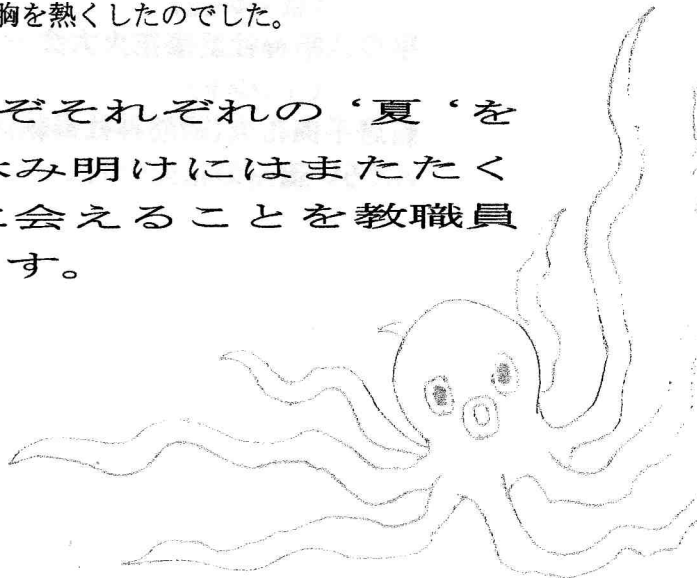 胸を熱くしたのでした。
ぞそれぞれの‘夏‘を
み明けにはまたたく
会えることを教職員
す。